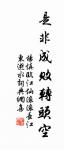 是非成敗轉頭空
楊慎臨江仙滾滾長江
東逝水詞典網集